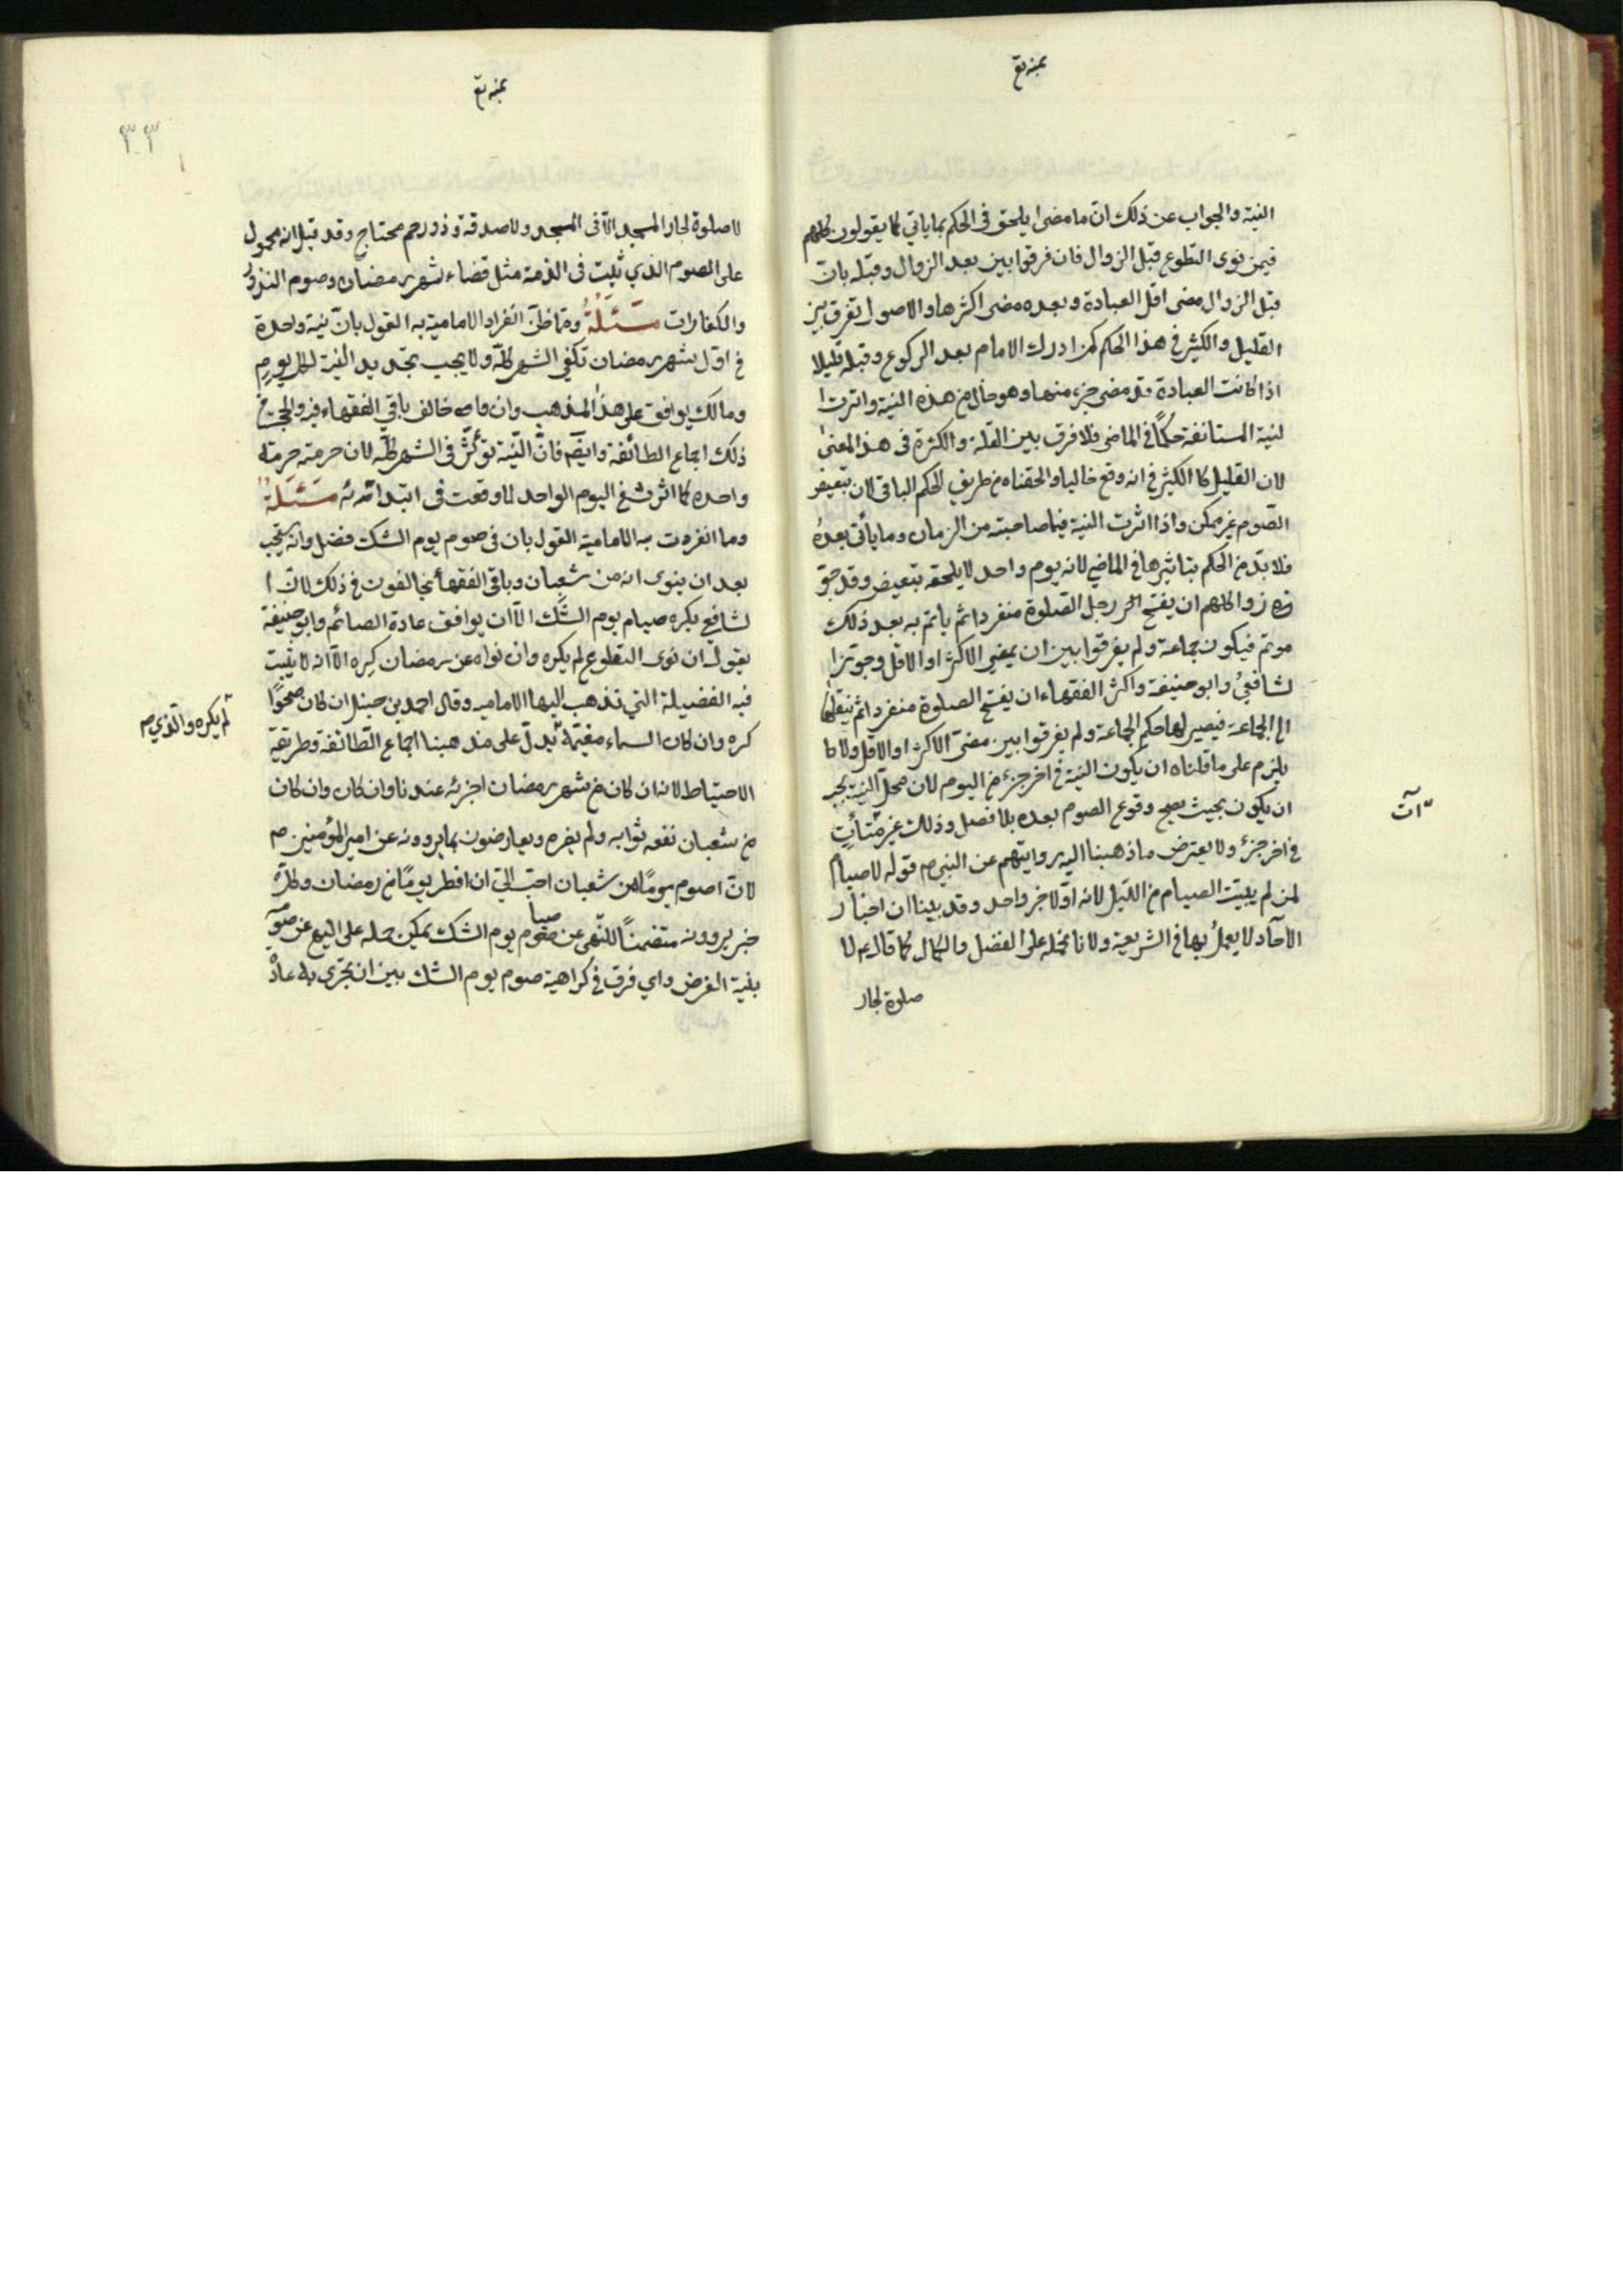 النية والجواب عن ذلك ان ما مضى يلحق فى الحكم بما ياتي كما يقولون كلهم
فيمن نوى التطوع قبل الزوال فان فرقوا بين بعد الزوال وقبله بان
قبل الزوال مضى اقل العبادة وبعده مضى اكثرها والاصول تفرق بين
القليل والكثير في هذا الحكم كمن ادرك الامام بعد الركوع وقبله قلنا
اذا كانت العبادة قد مضى جزء منها وهو خال من هذه النية واثرت ا
لنية المستانفة حكمًا في الماضي فلا فرق بين القلة والكثرة فى هذا المعنى
لان القليل كا الكثير في انه وقع خاليا والحقناه من طريق الحكم الباقي لان تبعيض
الصّوم غير ممكن واذا اثرت النية فيما صاحبته من الزمان وما يأتى بعده
فلا بدّ من الحكم بتاثيرها في الماضي لانه يوم واحد لا يلحقه تبعيض وقد جوّ
زوا كلهم ان يفتتح رجل الصّلوة منفردا ثم ياتم به بعد ذلك
موتم فيكون جماعة ولم يفرقوا بين ان يمضي الاكثر او الاقل وجوّز ا
لشافعيُ وابو حنيفة واكثر الفقهاء ان يفتتح الصلوة منفردا ثم ينقلها
الى الجماعة فيصير لها حكم الجماعة ولم يفرقوا بين مضىّ الاكثر او الاقل ولا
يلزم على ما قلناه ان يكون النية في اخر جزء من اليوم لان محل النية يجب
ان يكون بحيث يصح وقوع الصوم بعده بلا فصل وذلك غير متأتٍ
آت
في اخر جزء ولا يعترض ما ذهبنا اليه روايتهم عن النبي ص قوله لا صيام
لمن لم يبيّت الصيام من اللّيل لانه اوّلا خبر واحد وقد بينا ان اخبار
الآحاد لا يعملُ بها في الشريعة ولانا نحمله على الفضل والكمال كما قال ع لا
صلوة لجار
٣٣
لا صلوة لجار المسجد الّا فى المسجد ولا صدقة وذو رحم محتاج وقد قيل انه محمول
على الصوم الذي ثبت فى الذمة مثل قضاء شهر رمضان وصوم النذر
والكفارات مَسْئَلَةٌ ومما ظنّ انفراد الامامية به القول بانّ نية واحدة
في اوّل شهر رمضان تكفي الشهر كلّه ولا يجب تجديد النية لكل يومٍ
ومالك يوافق على هذا المذهب وان خالف باقي الفقهاء فيه والحجة في
ذلك اجماع الطائفة وايضًا فانّ النّية تؤثّر فى الشهر كلّه لان حرمته حرمة
واحدة كما اثرت في اليوم الواحد لما وقعت فى ابتدائه مَسْئَلَةٌ
وما انفردت به الامامية القول بان فى صوم يوم الشك فضل وانه يستحب
بعد ان ينوى انه من شعبان وباقي الفقهاء يخالفون في ذلك لانّ ا
لشافعي يكره صيام يوم الشّك الّا ان يوافق عادة الصائم وابو حنيفة
يقول ان نوى التطوع لم يكره وان نواه عن رمضان كره الّا انه لا يثبت
فيه الفضيلة التي تذهب اليها الاماميه وقال احمد بن حنبل ان كان صحوًا
لم يكره والذي
كره وان كان السماء مغيّمة يدلّ على مذهبنا اجماع الطّائفة وطريقة
الاحتياط لانه ان كان من شهر رمضان اجزئه عندنا وان كان وان كان
من شعبان نفعه ثوابه ولم يضره ويعارضون بما يروونه عن امير المؤمنين ص
لان اصوم يومًا من شعبان احبّ اليّ ان افطر يومًا من رمضان وكل
خبر يروونه متضمنًا للنّهى عن صوم يوم الشك يمكن حمله على النهي عن صو
صيا
بنية الفرض واي فرق في كراهية صوم يوم الشك بين ان يجري به عادة